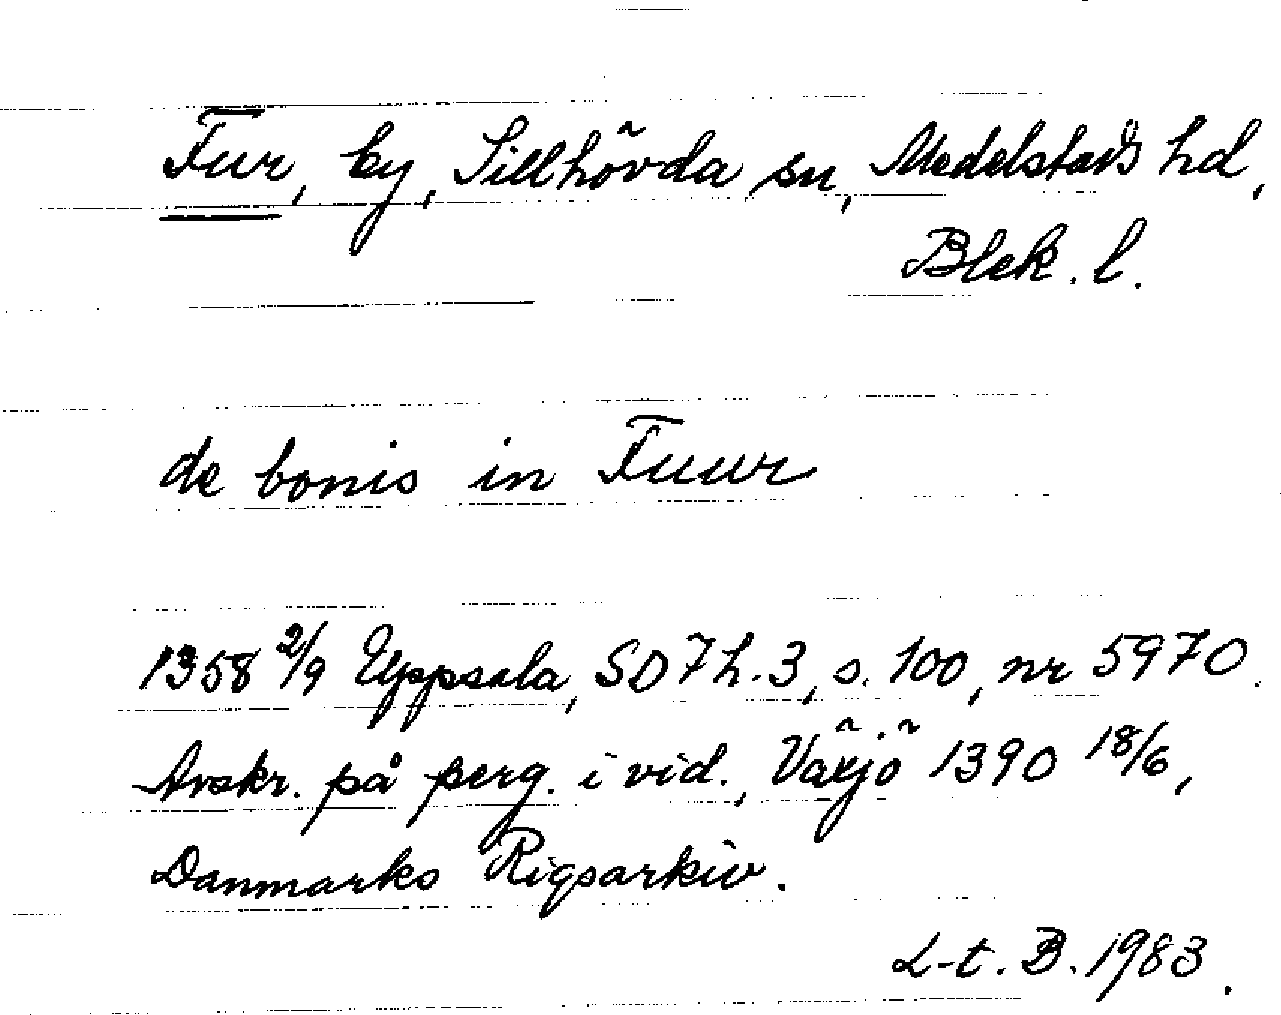 Fur, by, Sillhövda sn, Medelstads hd,
Blek. l.
de bonis in Fuur
1358 2/9 Uppsala, SD 7 h. 3, s. 100, nr 5970.
Avskr. på perg. i vid., Växjö 1390 18/6,
Danmarks Rigsarkiv.
L-t. B. 1983.